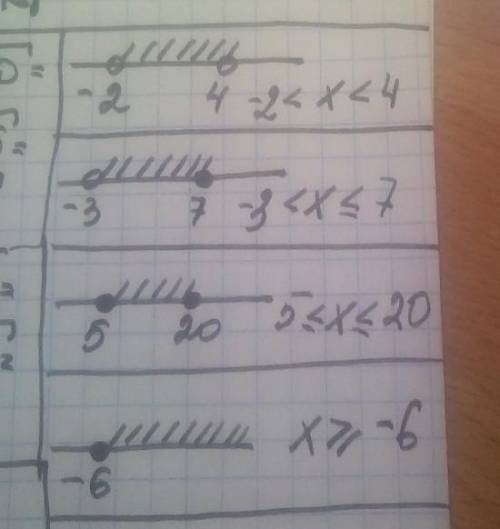 -2 4 -2 < x < 4
-3 7 -3 < x ≤ 7
5 20 5 ≤ x ≤ 20
-6 x ≥ -6